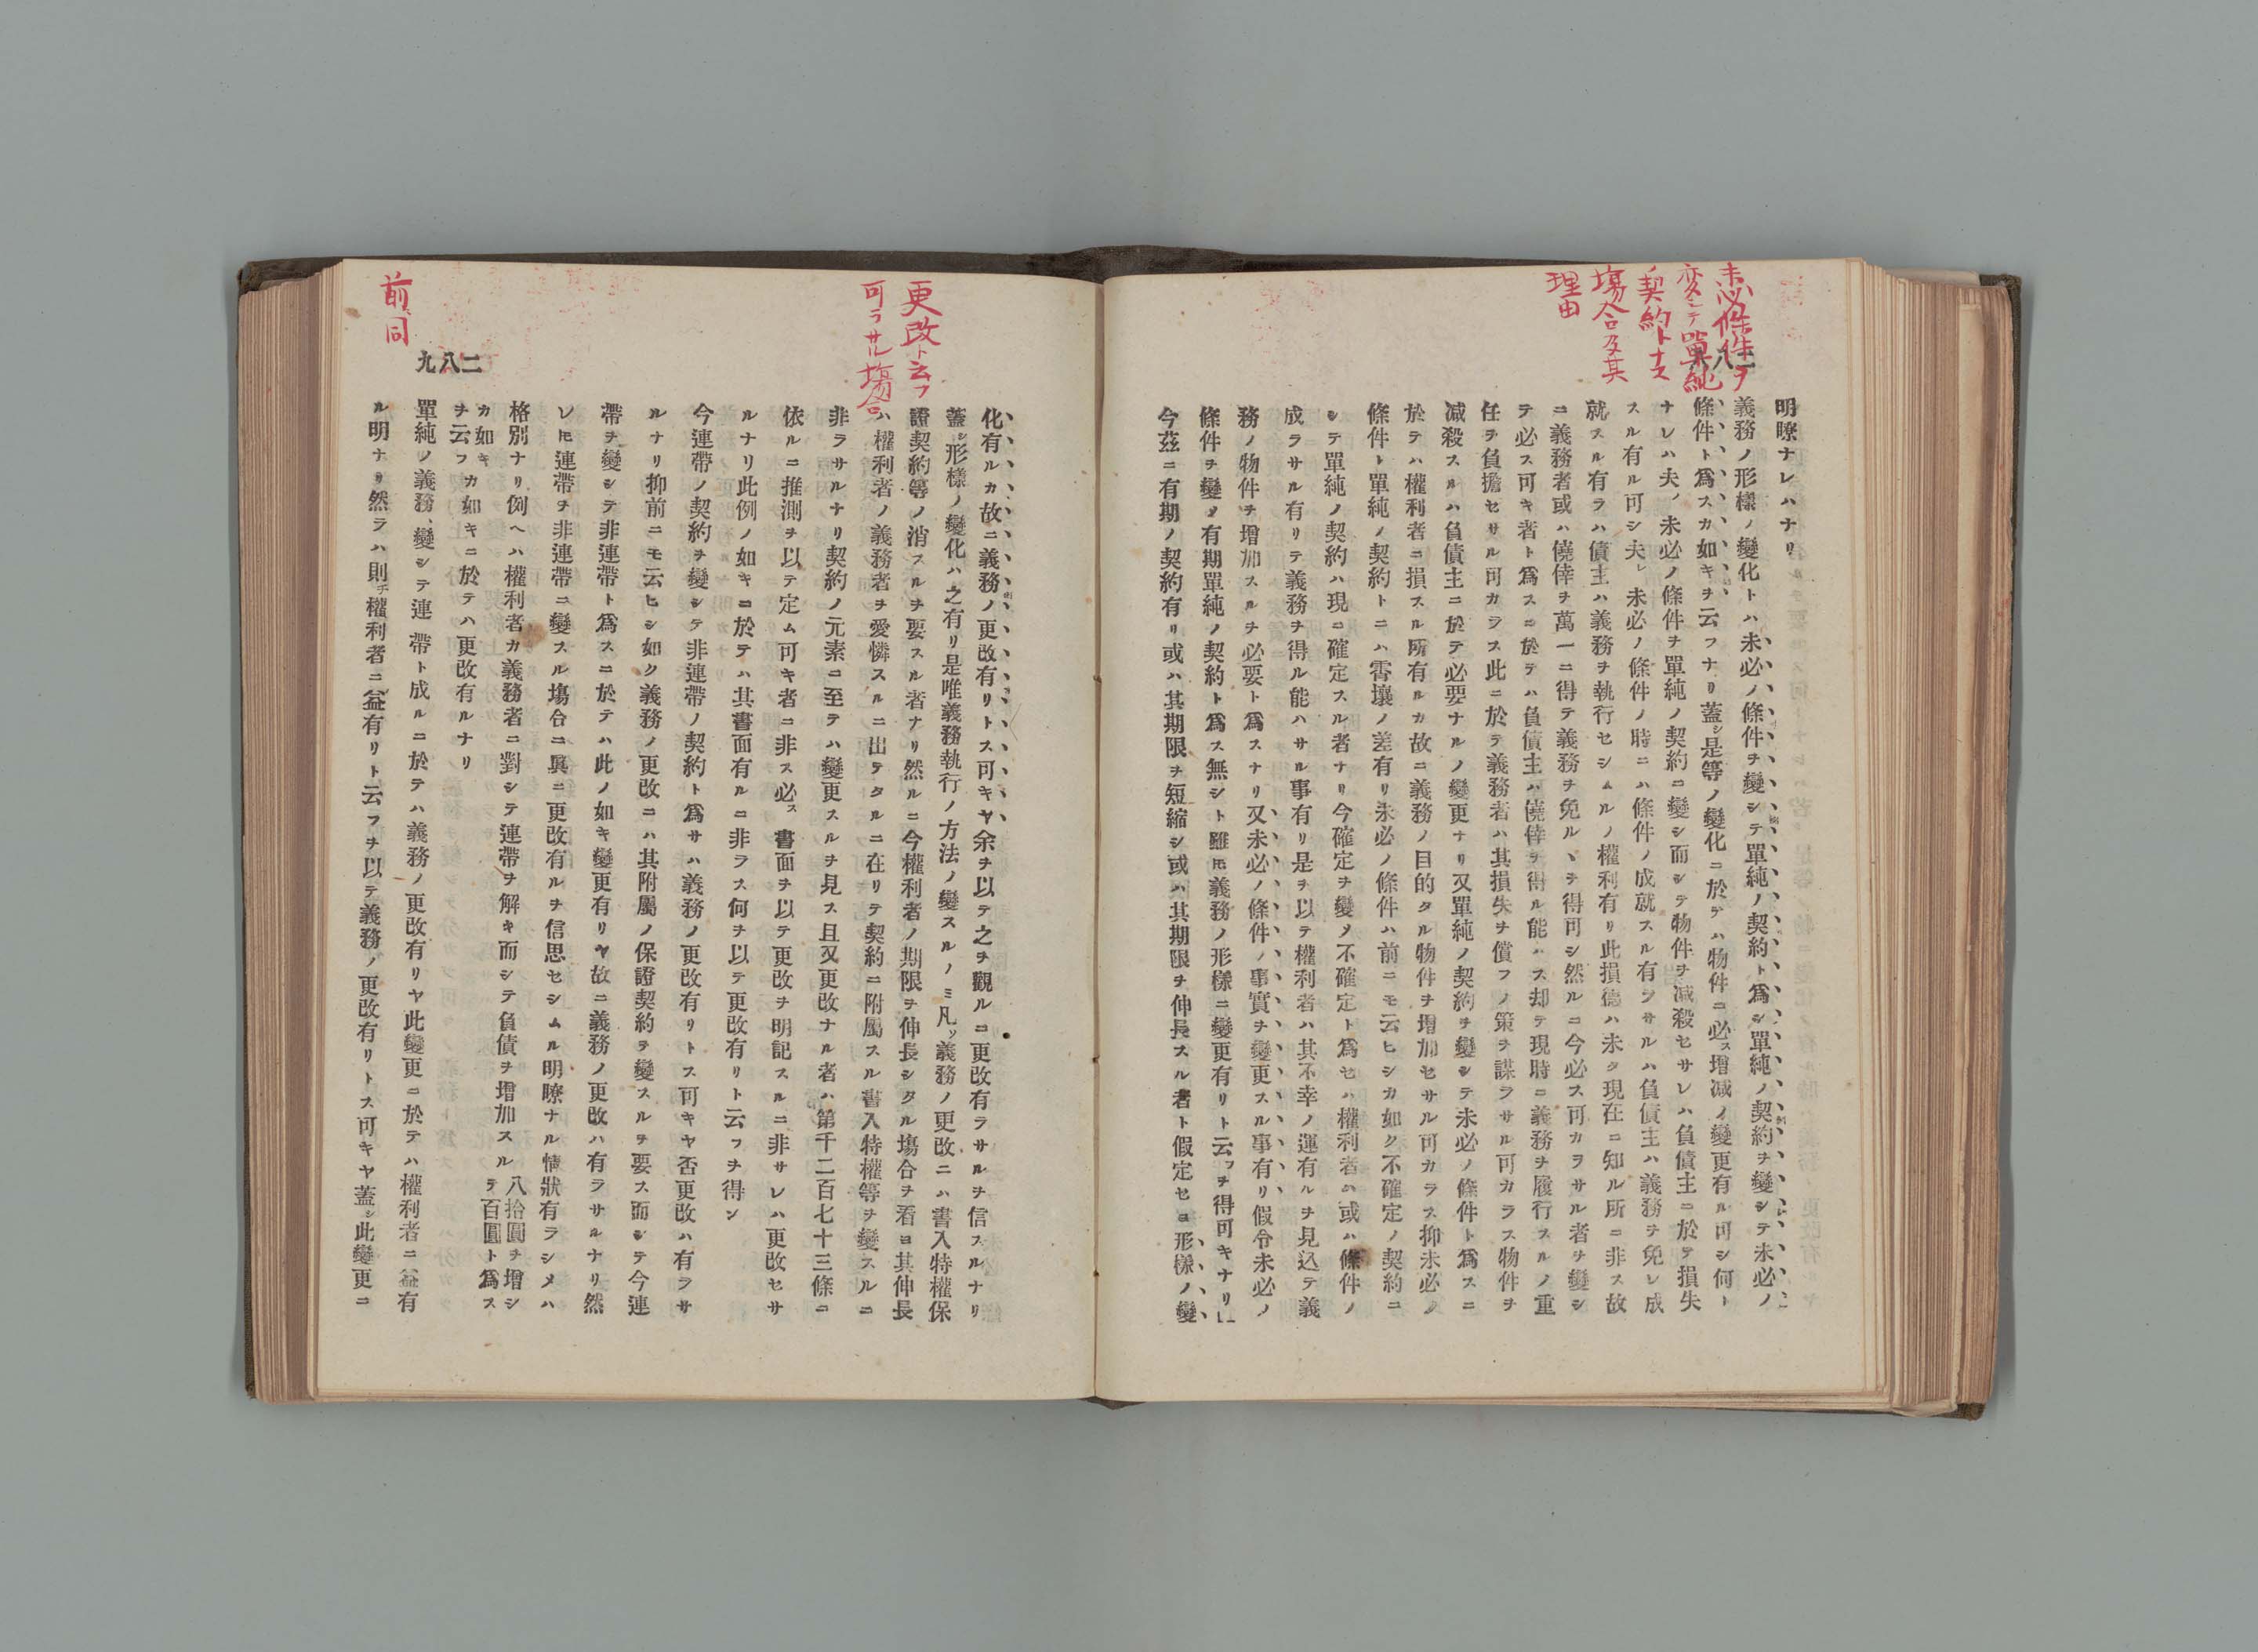 未必條件ヲ
変シテ單純
ノ契約ト
塲合及其
理由
二八八
明瞭ナレハナリ
義務ノ形樣ノ變化トハ未必ノ條件ヲ變シテ單純ノ契約ト爲シ單純ノ契約ヲ變シテ未必ノ
條件ト爲スカ如キヲ云フナリ蓋シ是等ノ變化ニ於テハ物件ニ必ス增減ノ變更有ル可シ何ト
ナレハ夫ノ未必ノ條件ヲ單純ノ契約ニ變シ而シテ物件ヲ减殺セサレハ負債主ニ於テ損失
スル有ル可シ夫レ未必ノ條件ノ時ニハ條件ノ成就スル有ラサルハ負債主ハ義務ヲ免レ成
就スル有ラハ債主ハ義務ヲ執行セシムルノ權利有リ此損德ハ未タ現在ニ知ル所ニ非ス故
ニ義務者或ハ僥倖ヲ萬一ニ得テ義務ヲ免ルヽヲ得可シ然ルニ今必ス可カラサル者ヲ變シ
テ必ス可キ者ト爲スニ於テハ負債主ハ僥倖ヲ得ル能ハス却テ現時ニ義務ヲ履行スルノ重
任ヲ負擔セサル可カラス此ニ於テ義務者ハ其損失ヲ償フノ策ヲ謀ラサル可カラス物件ヲ
减殺スルハ負債主ニ於テ必要ナルノ變更ナリ又單純ノ契約ヲ變シテ未必ノ條件ト爲スニ
於テハ權利者ニ損スル所有ルカ故ニ義務ノ目的タル物件ヲ增加セサル可カラス抑未必ノ
條件ト單純ノ契約トニハ霄壤ノ差有リ未必ノ條件ハ前ニモ云ヒシカ如ク不確定ノ契約ニ
シテ單純ノ契約ハ現ニ確定スル者ナリ今確定ヲ變メ不確定ト爲セハ權利者ハ或ハ條件ノ
成ラサル有リテ義務ヲ得ル能ハサル事有リ是ヲ以テ權利者ハ其不幸ノ運有ルヲ見込テ義
務ノ物件ヲ增加スルヲ必要ト爲スナリ又未必ノ條件ノ事實ヲ變更スル事有リ假令未必ノ
條件ヲ變メ有期單純ノ契約ト爲ス無シト雖𪜈義務ノ形樣ニ變更有リト云フヲ得可キナリ」
今茲ニ有期ノ契約有リ或ハ其期限ヲ短縮シ或ハ其期限ヲ伸長スル者ト假定セヨ形樣ノ變
更改ト云フ
可ラサル塲合
化有ルカ故ニ義務ノ更改有リトス可キヤ余ヲ以テ之ヲ觀ルニ更改有ラサルヲ信スルナリ
蓋シ形樣ノ變化ハ之有リ是唯義務執行ノ方法ノ變スルノミ凡ソ義務ノ更改ニハ書入特權保
證契約等ノ消スルヲ要スル者ナリ然ルニ今權利者ノ期限ヲ伸長シタル塲合ヲ看ヨ其伸長
ハ權利者ノ義務者ヲ愛憐スルニ出テタルニ在リテ契約ニ附屬スル書入特權等ヲ變スルニ
非ラサルナリ契約ノ元素ニ至テハ變更スルヲ見ス且又更改ナル者ハ第千二百七十三條ニ
依ルニ推測ヲ以テ定ム可キ者ニ非ス必ス書面ヲ以テ更改ヲ明記スルニ非サレハ更改セサ
ルナリ此例ノ如キニ於テハ其書面有ルニ非ラス何ヲ以テ更改有リト云フヲ得ン
今連帶ノ契約ヲ變シテ非連帶ノ契約ト爲サハ義務ノ更改有リトス可キヤ否更改ハ有ラサ
ルナリ抑前ニモ云ヒシ如ク義務ノ更改ニハ其附屬ノ保證契約ヲ變スルヲ要ス而シテ今連
帶ヲ變シテ非連帶ト爲スニ於テハ此ノ如キ變更有リヤ故ニ義務ノ更改ハ有ラサルナリ然
レ𪜈連帶ヲ非連帶ニ變スル塲合ニ眞ニ更改有ルヲ信思セシムル明瞭ナル情狀有ラシメハ
格別ナリ例ヘハ權利者カ義務者ニ對シテ連帶ヲ解キ而シテ負債ヲ增加スル八拾圓ヲ增シテ百圓ト爲ス
カ如キヲ云フカ如キニ於テハ更改有ルナリ
前同
二八九
單純ノ義務、變シテ連帶ト成ルニ於テハ義務ノ更改有リヤ此變更ニ於テハ權利者ニ益有
ル明ナリ然ラハ則チ權利者ニ益有リト云フヲ以テ義務ノ更改有リトス可キヤ蓋シ此變更ニ